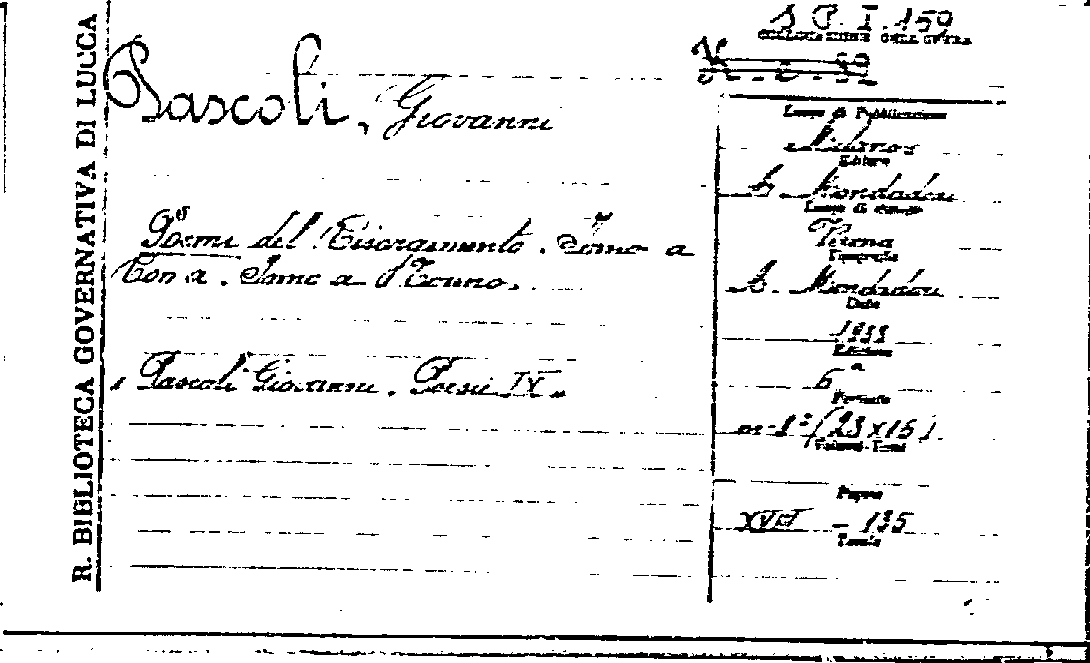 R. BIBLIOTECA GOVERNATIVA DI LUCCA
Pascoli, Giovanni
Poemi del Risorgimento. Inno a
Roma. Inno a Torino.
"Pascoli Giovanni. Poesie IX"
S. P. I. 159
COLLOCAZIONE DELL'OPERA
Luogo di Pubblicazione
Milano
Editore
A. Mondadori
Luogo di stampa
Verona
Tipografia
A. Mondadori
Data
Edizione
6ª
Formato
in-8° (23x15)
Volumi-Tomi
Pagine
XVII - 135
Tavole